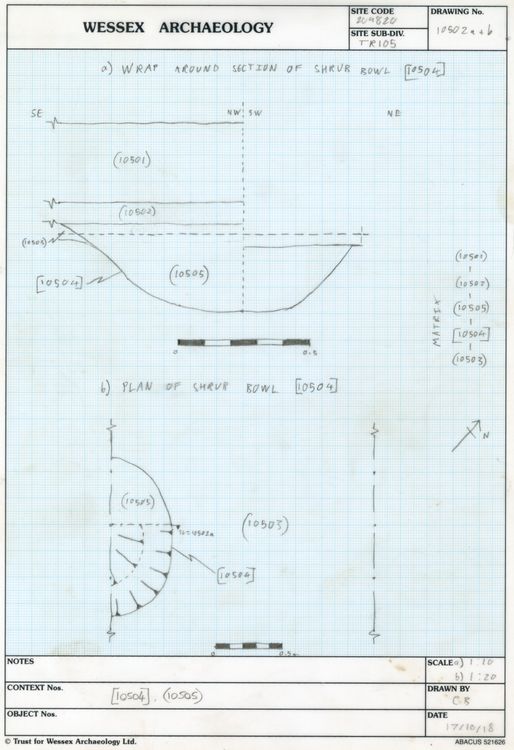 WESSEX ARCHAEOLOGY
SITE CODE
204820
SITE SUB-DIV.
TR105
DRAWING No.
10502a+b
a) WRAP AROUND SECTION OF SHRUB BOWL [10504]
SE NW SW NE
(10501)
(10502)
(10503)
[10504]
(10505)
0 0.5
MATRIX
(10501)
(10502)
(10505)
[10504]
(10503)
b) PLAN OF SHRUB BOWL [10504]
N
(10505)
(10503)
[10504]
0 0.5m
NOTES
SCALE a) 1:10
b) 1:20
CONTEXT Nos.
[10504], (10505)
DRAWN BY
CB
OBJECT Nos.
DATE
17/10/18
© Trust for Wessex Archaeology Ltd.
ABACUS 521626